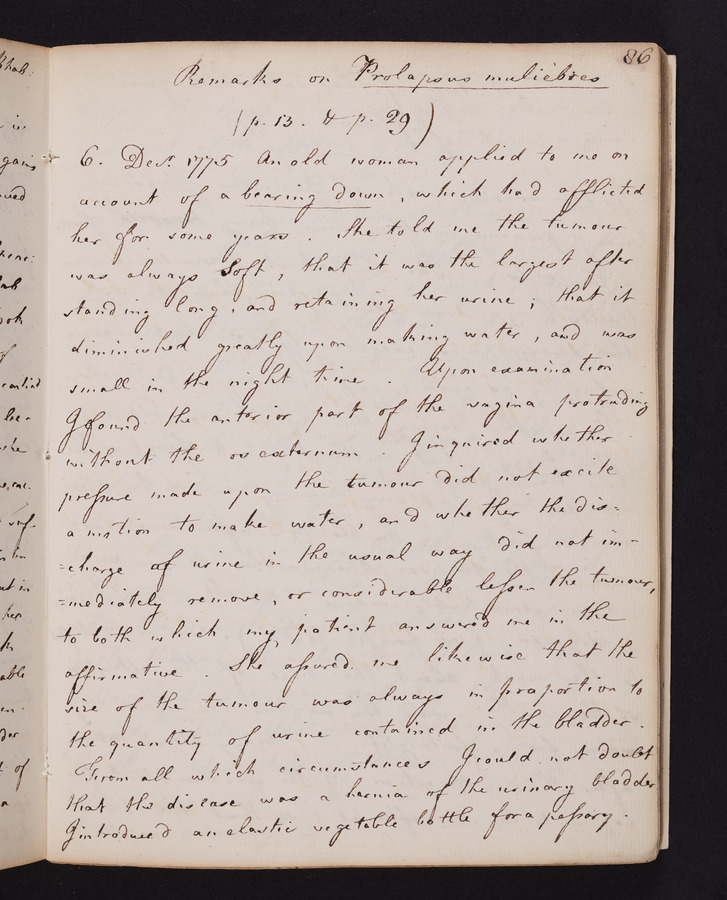 86
Remarks on Prolapsus muliebres
(p. 13. & p. 29)
6. Decr. 1775 An old woman applied to me on
account of a bearing down, which had afflicted
her for some years. She told me the tumour
was always soft, that it was the largest after
standing long, and retaining her urine; that it
diminished greatly upon making water, and was
small in the night time. Upon examination
I found the anterior part of the vagina protruding
without the os externum. I inquired whether
pressure made upon the tumour did not excite
a motion to make water, and whether the dis=
=charge of urine in the usual way did not im=
=mediately remove, or considerable lessen the tumour,
to both which my patient answered me in the
affirmative. She assured me likewise that the
size of the tumour was always in proportion to
the quantity of urine contained in the bladder.
From all which circumstances I could not doubt
that the disease was a hernia of the urinary bladder
I introduced an elastic vegetable bottle for a pessary.